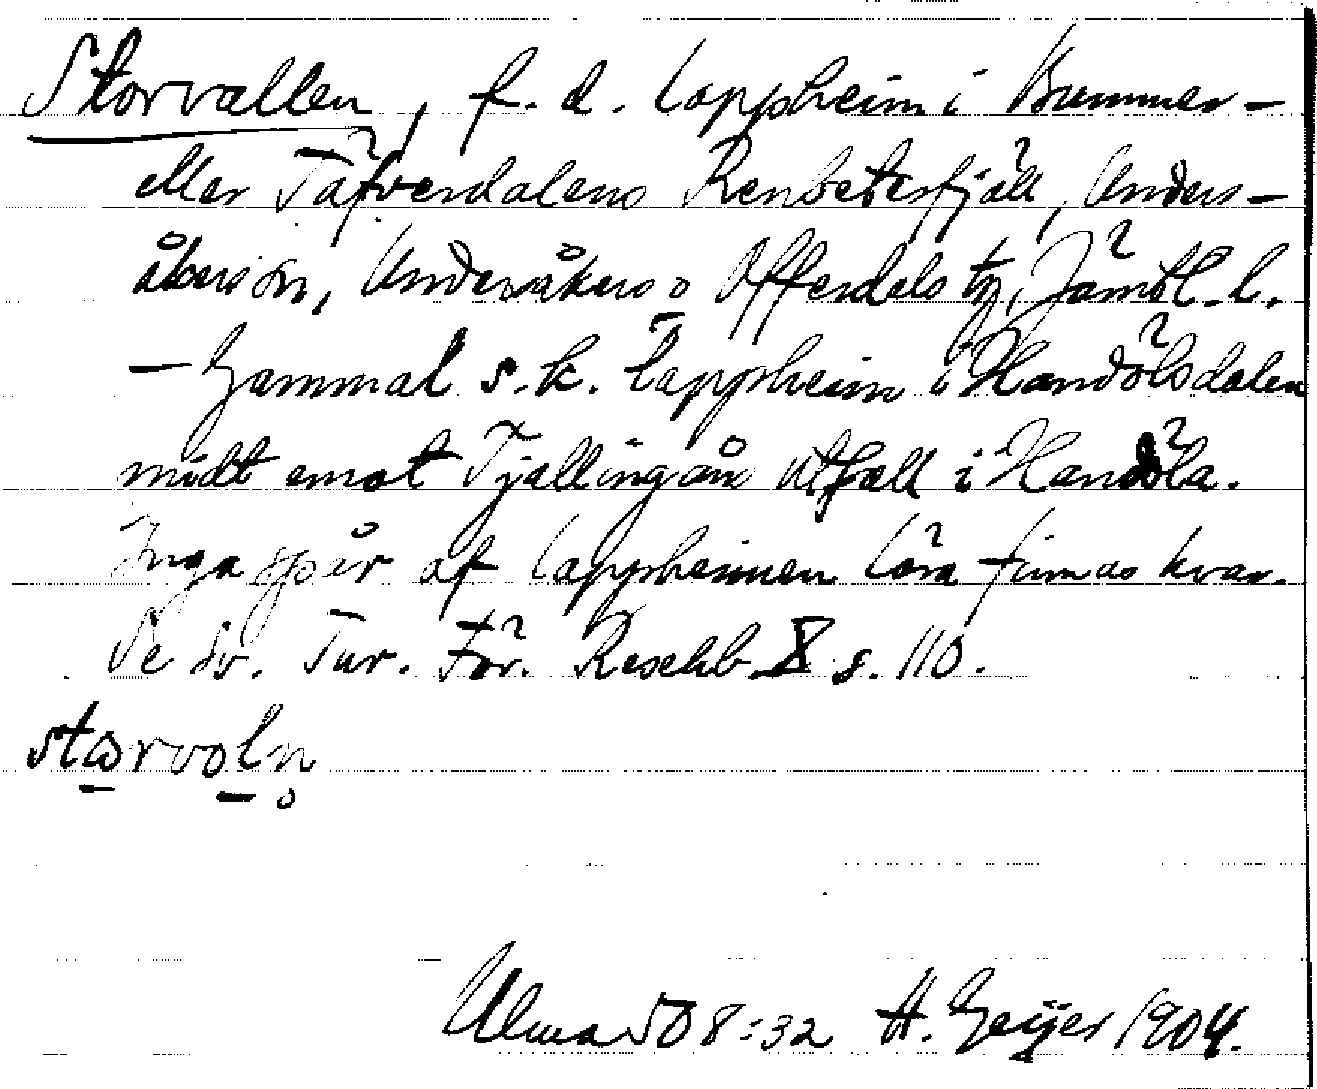 Storvallen, f. d. lappheim i Bummer-
eller Täfverdalens Renbetesfjäll, Unders-
åkers sn, Undersåkers o Offerdals tg, Jämtl. l.
— Gammal s. k. lappheim i Handölsdalen
midt emot Tjallingåns utfall i Handöla.
Inga spår af lappheimen lära finnas kvar.
Se Sv. Tur. För. Resehb. X s. 110.
storvoln
Ulma 508:32 H. Geijer 1904.